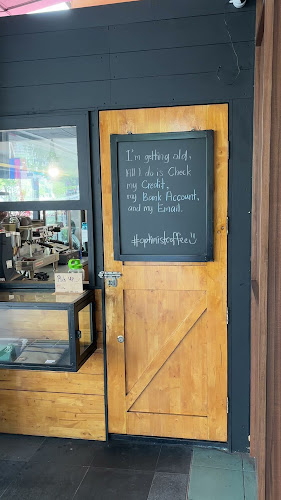 I'm getting old,
All I do is Check
my Credit,
my Bank Account,
and my Email.
#optimistcoffee